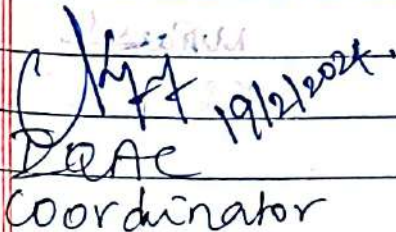 19/2/2024.
DQAC
Coordinator